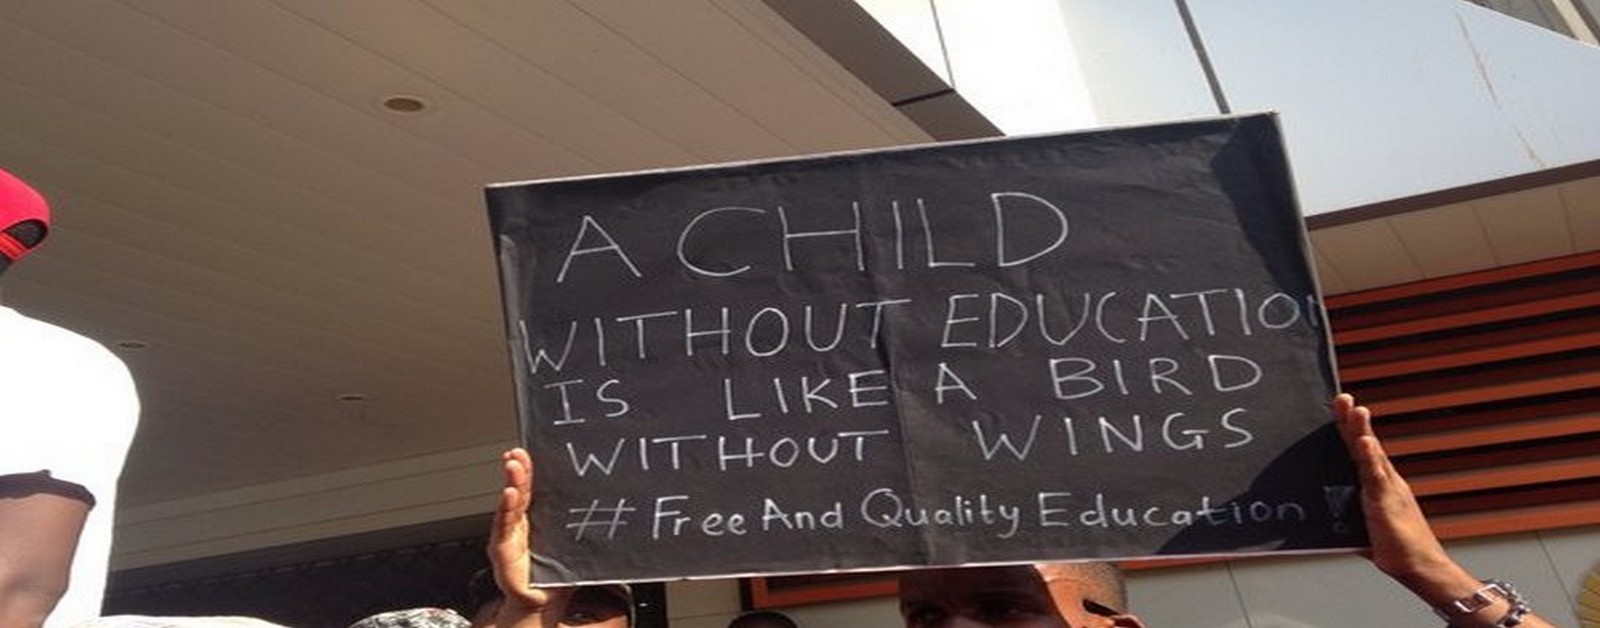 A CHILD
WITHOUT EDUCATION
IS LIKE A BIRD
WITHOUT WINGS
# Free And Quality Education !